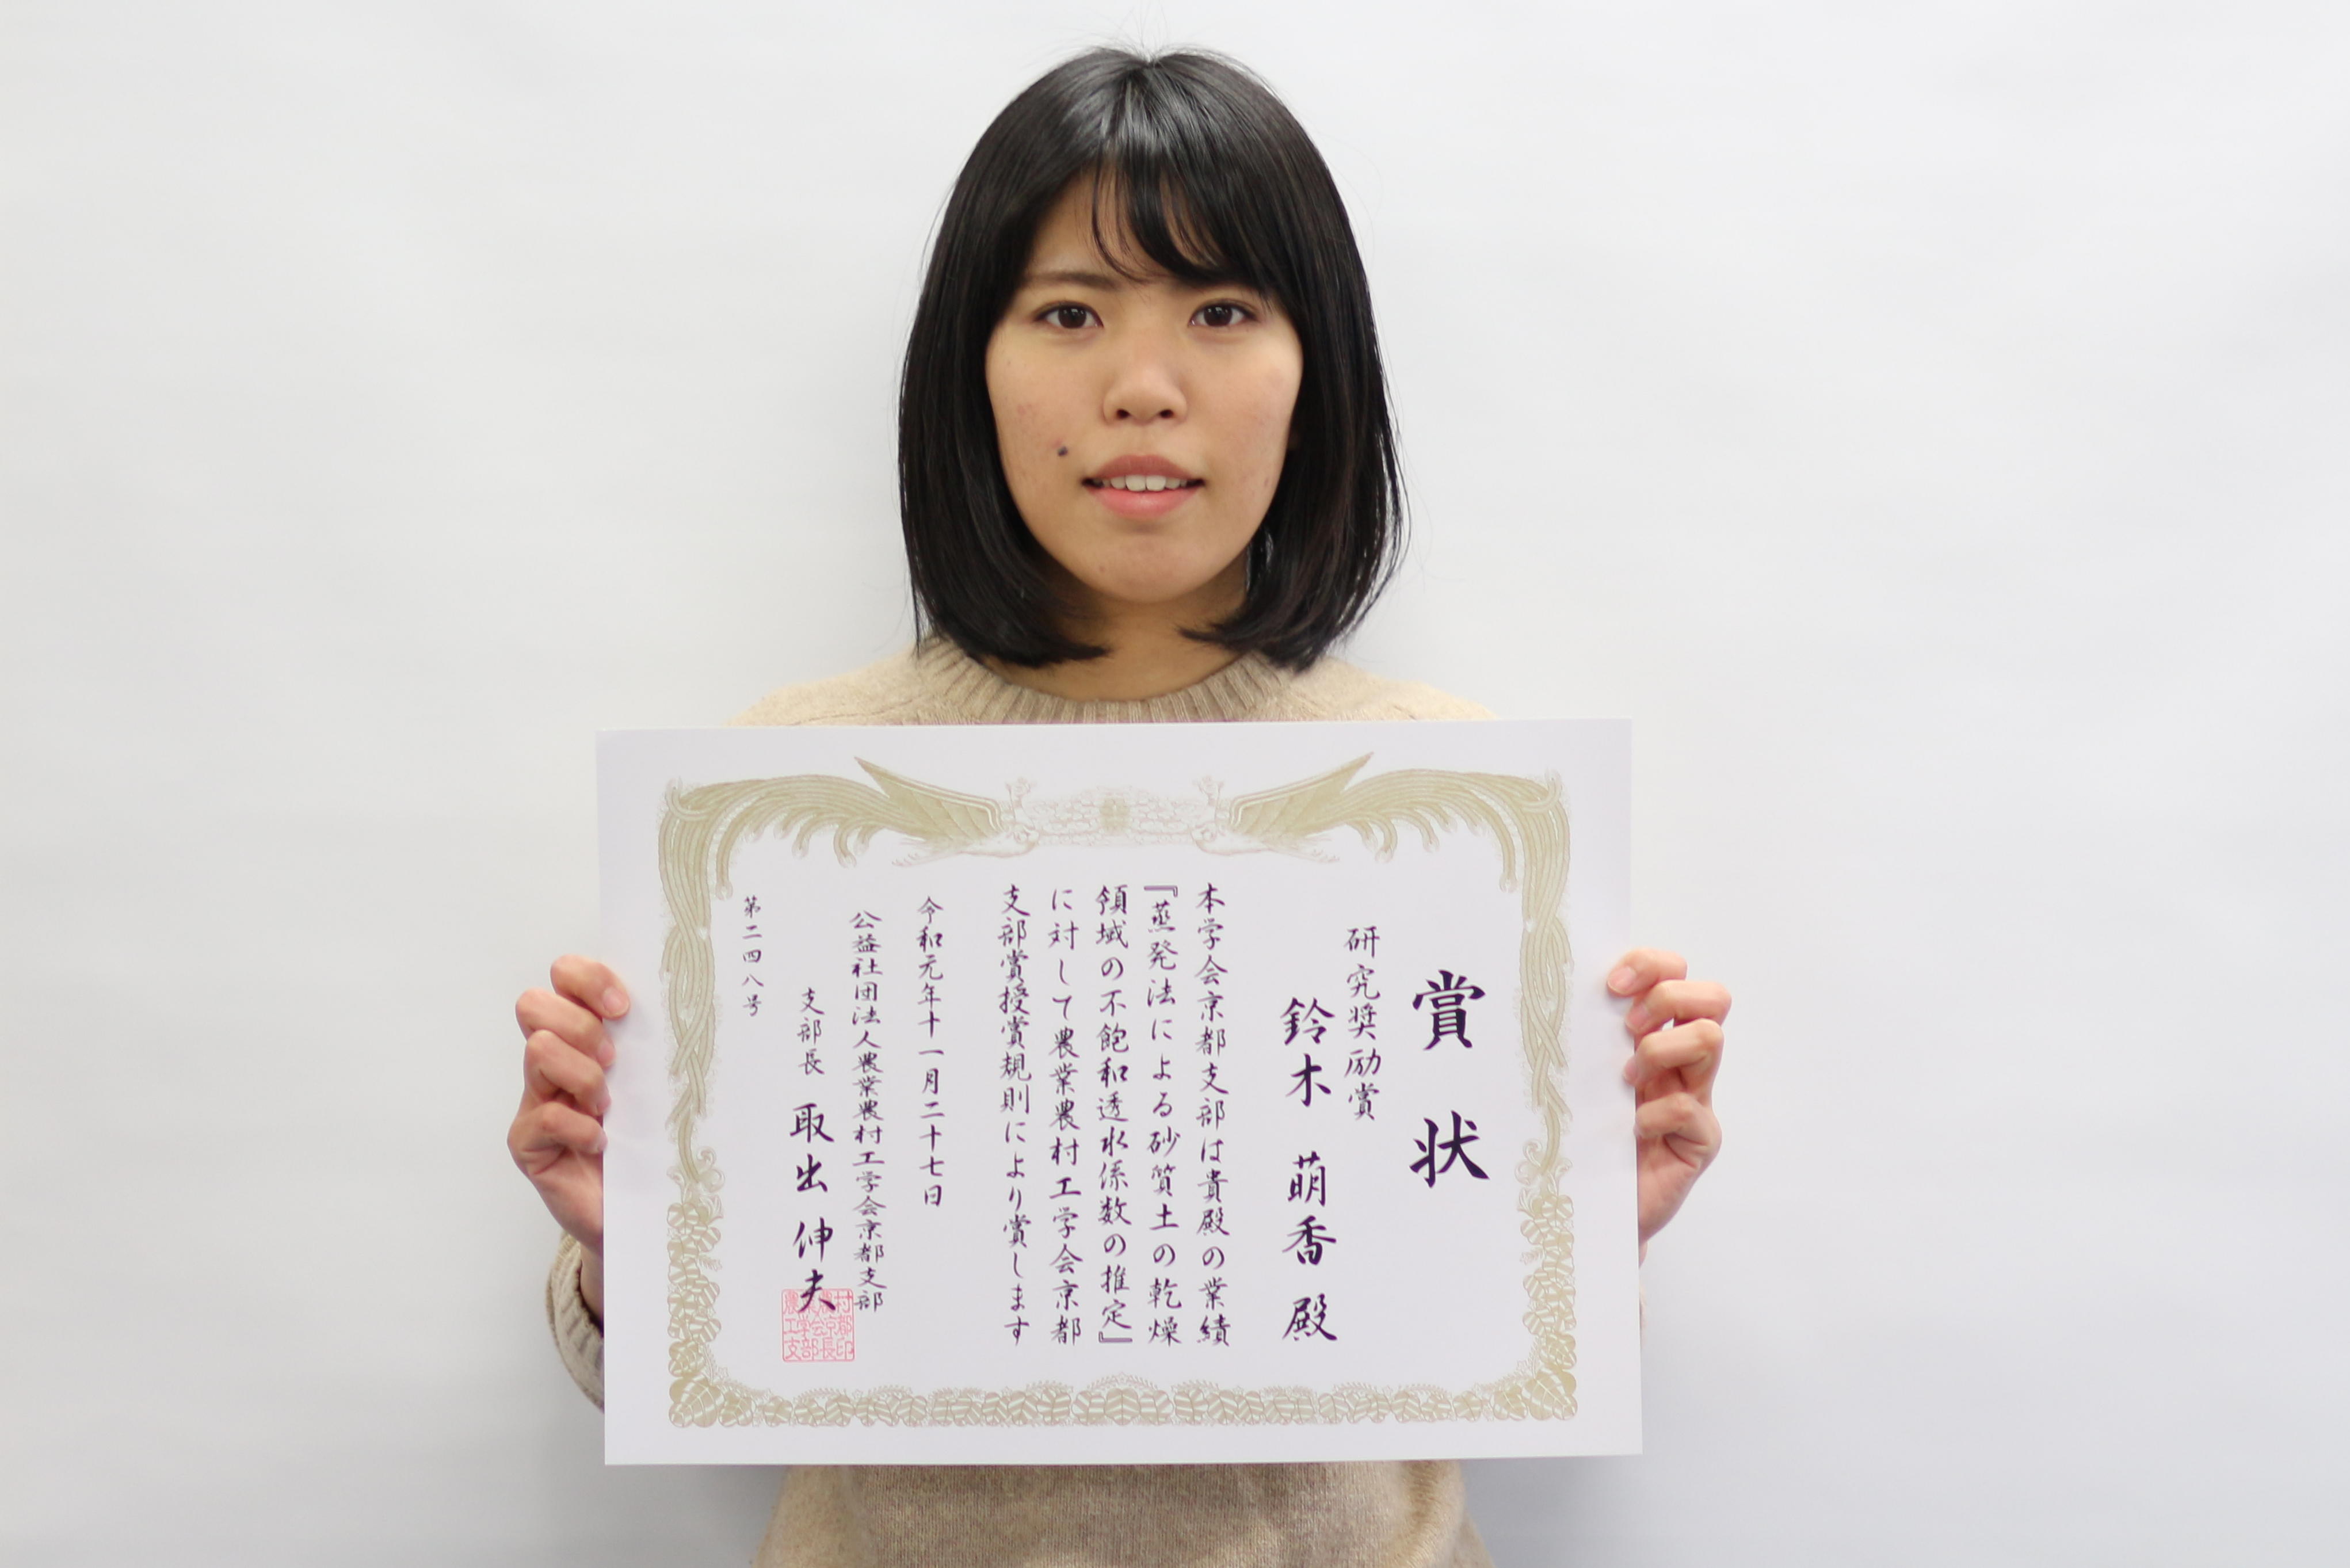 賞状
研究奨励賞
鈴木 萌香 殿
本学会京都支部は貴殿の業績
『蒸発法による砂質土の乾燥
領域の不飽和透水係数の推定』
に対して農業農村工学会京都
支部賞授賞規則により賞します
令和元年十一月二十七日
公益社団法人農業農村工学会京都支部
支部長 取出 伸夫
第二四八号